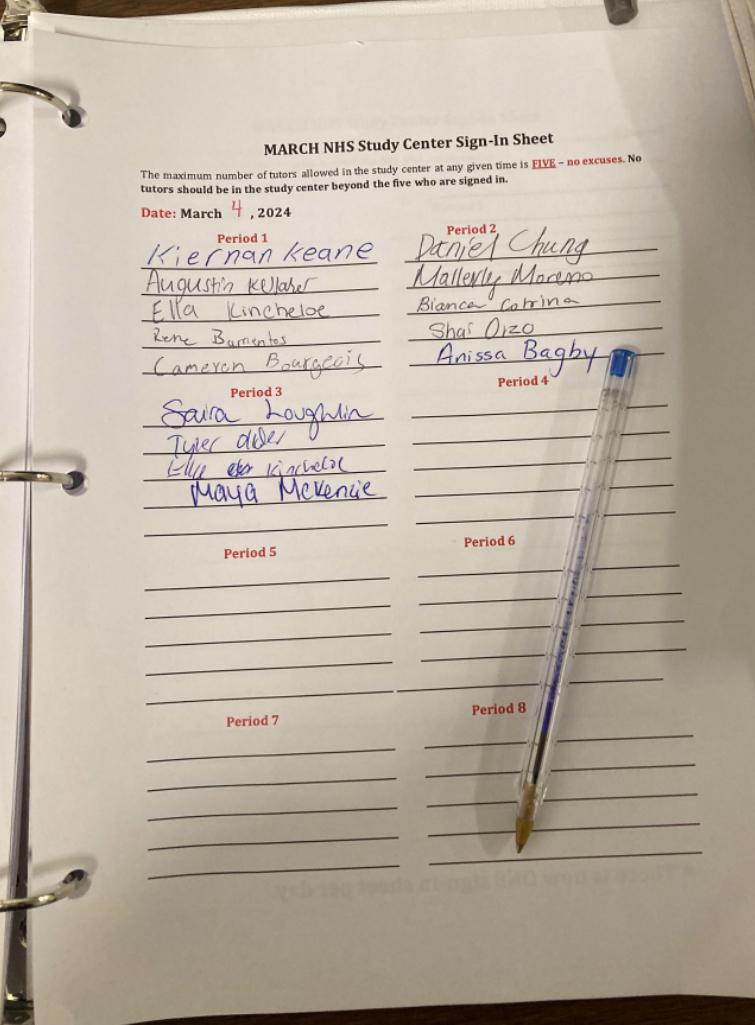 MARCH NHS Study Center Sign-In Sheet
The maximum number of tutors allowed in the study center at any given time is FIVE – no excuses. No
tutors should be in the study center beyond the five who are signed in.
Date: March 4, 2024
Period 1
Kiernan Keane
Augustin Kellaher
Ella Kincheloe
Rene Barrientos
Cameron Bourgeois
Period 2
Daniel Chung
Mallerly Moreno
Bianca Catrina
Shai Orzo
Anissa Bagby
Period 3
Saira Loughlin
Tyler
Ella Kincheloe
Maya McKenzie
Period 4
Period 5
Period 6
Period 7
Period 8